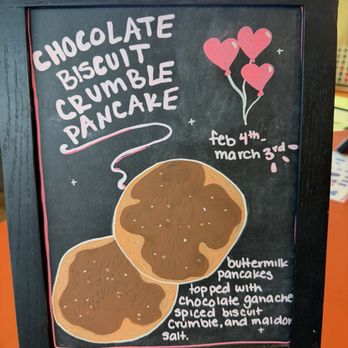 CHOCOLATE
BISCUIT
CRUMBLE
PANCAKE
feb 4th-
march 3rd
buttermilk
pancakes
topped with
chocolate ganache
spiced biscuit
crumble, and maldon
salt.